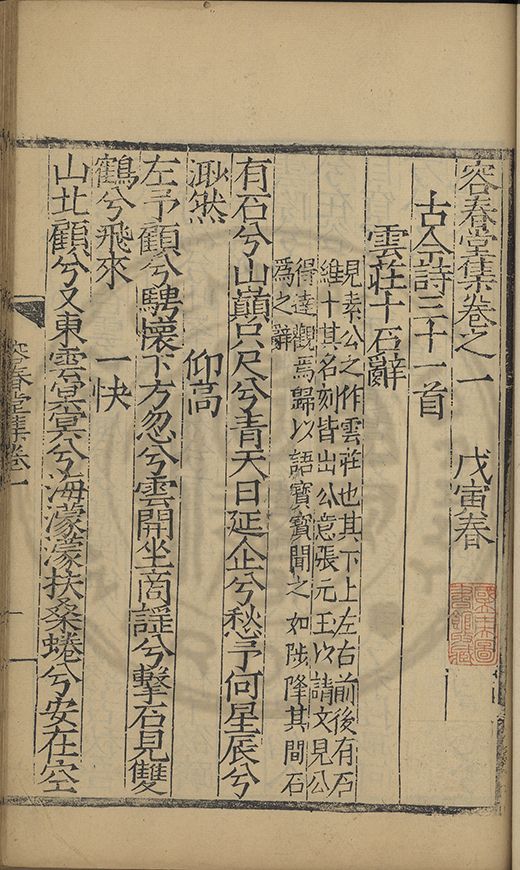 容春堂集卷之一　戊寅春
古今詩三十一首
雲莊十石辭
見素公之作雲莊也其下上左右前後有石
維十其名刻皆出公意張元玉以請文見公
得達觀焉歸以語寶寶聞之如陟降其間石
爲之辭
有石兮山巔只尺兮青天日延企兮愁予何星辰兮
溆然
仰高
左予顧兮騁懷下方忽兮雲開坐商謡兮擊石見雙
鶴兮飛來
一快
山北顧兮又東雲冥冥兮海濛濛扶桑蜷兮安在空
容春堂集卷一